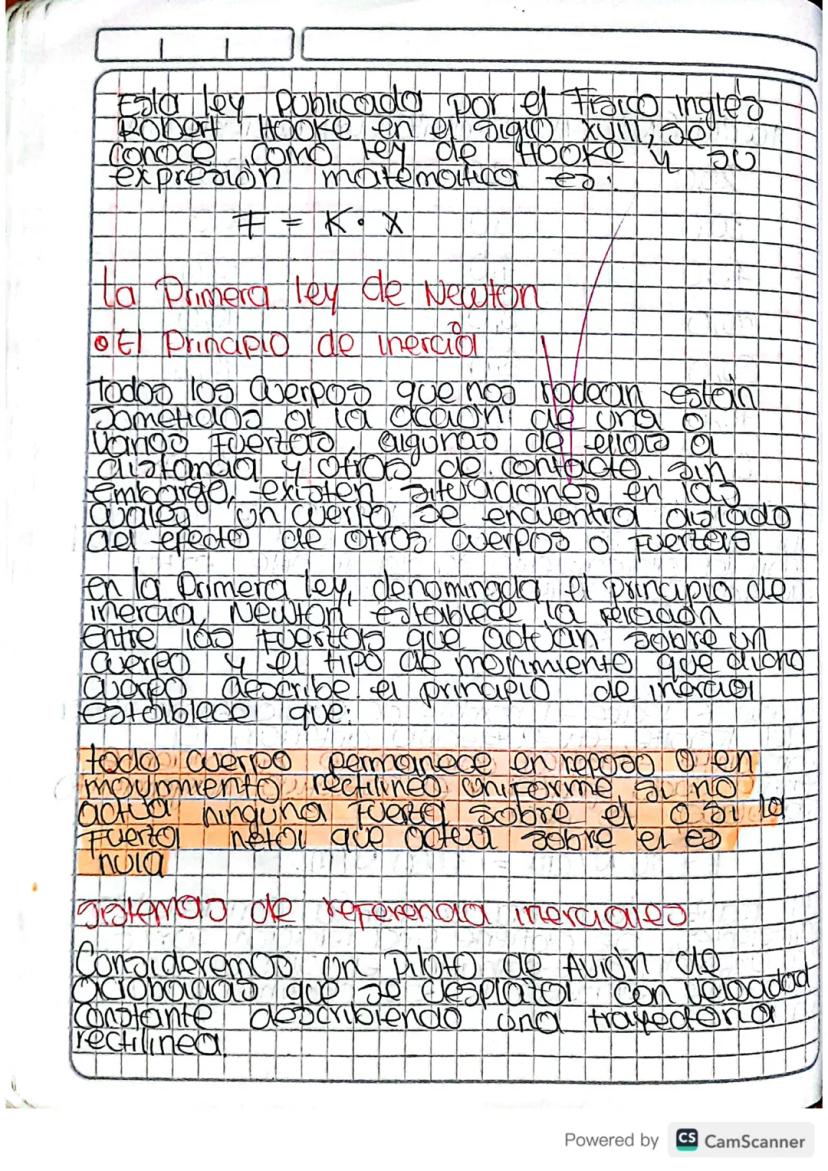 Esta ley publicada por el Físico inglés
ROBERT HOOKE en el siglo XVIII, se
conoce como ley de HOOKE y su
expresión matemática es:
F = K · X
la Primera ley de Newton
El Principio de inercia
todos los cuerpos que nos rodean están
sometidos a la acción de una o
varias fuerzas, algunas de ellas a
distancia y otros de contacto. sin
embargo, existen situaciones en las
cuales un cuerpo se encuentra aislado
del efecto de otros cuerpos o fuerzas
en la Primera ley, denominada el principio de
inercia, Newton establece la relación
entre las fuerzas que actúan sobre un
cuerpo y el tipo de movimiento que dicho
cuerpo describe el principio de inercia
establece que:
todo cuerpo permanece en reposo o en
movimiento rectilineo uniforme si no
actua ninguna fuerza sobre el o si la
fuerza neta que actua sobre el es
nula
sistemas de referencia inerciales
Consideremos un Piloto de Avión de
acrobacias que se desplaza con velocidad
constante describiendo una trayectoria
rectilinea.
Powered by CS CamScanner